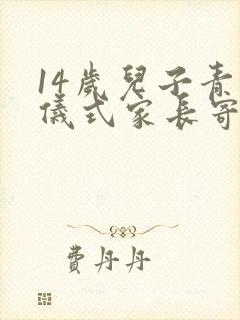 14歲兒子青
儀式家長寄
費丹丹